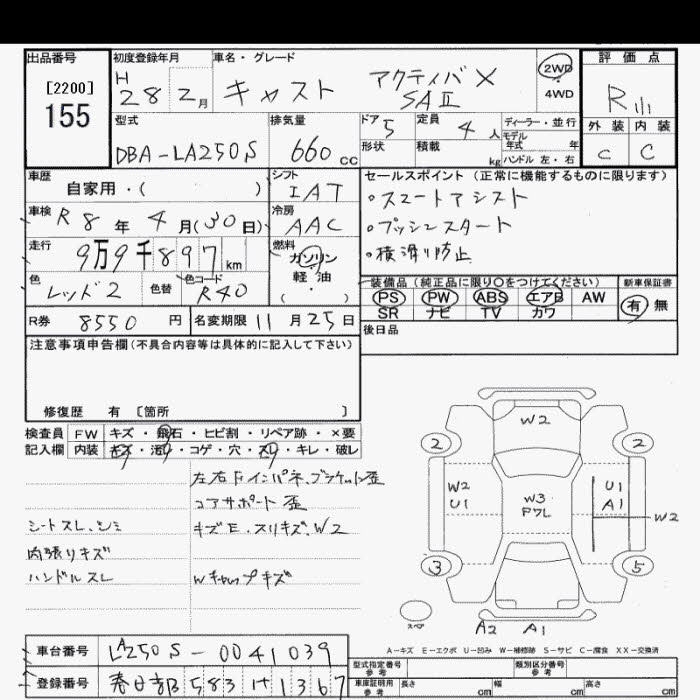 出品番号
[2200]
155
初度登録年月
H 28 2月
車名・グレード
キャスト アクティバ X
SAⅡ
2WD
4WD
評価点
R
外装 内装
C C
型式
DBA-LA250S
排気量
660 cc
ドア 5
定員 4人
ディーラー・並行
モデル
年式 年
形状
積載 kg
ハンドル 左・右
車歴
自家用・( )
シフト
IAT
セールスポイント(正常に機能するものに限ります)
。スマートアシスト
。プッシュスタート
。横滑り防止
車検 R8年4月(30日)
冷房
AAC
走行
9万9千897km
燃料
ガソリン
軽・油
( ・ )
色
レッド2
色替
色コード
R40
装備品(純正品に限り〇をつけてください)
新車保証書
PS PW ABS エアB AW
SR ナビ TV カワ
有 無
R券 8550 円
名変期限 11月25日
後日品
注意事項申告欄(不具合内容等は具体的に記入して下さい)
修復歴 有 〔箇所 〕
検査員 FW キズ・飛石・ヒビ割・リペア跡・×要
記入欄 内装 キズ・汚れ・コゲ・穴・スレ・キレ・破レ
左右Fインパネ、ブラケット歪
コアサポート歪
シートスレ、シミ
キズE・スリキズ、W2
内張りキズ
ハンドルスレ
Wキャップキズ
W2
2 2
W2
U1
W3
PワL
U1
A1
W2
3 5
スペア
A2 A1
A-キズ E-エクボ U-凹み W-補修跡 S-サビ C-腐食 XX-交換済
車台番号 LA250S-0041039
登録番号 春日部 583 け 1367
型式指定番号
参考
類別区分番号
参考
車庫証明用
参考
長さ cm 幅 cm 高さ cm